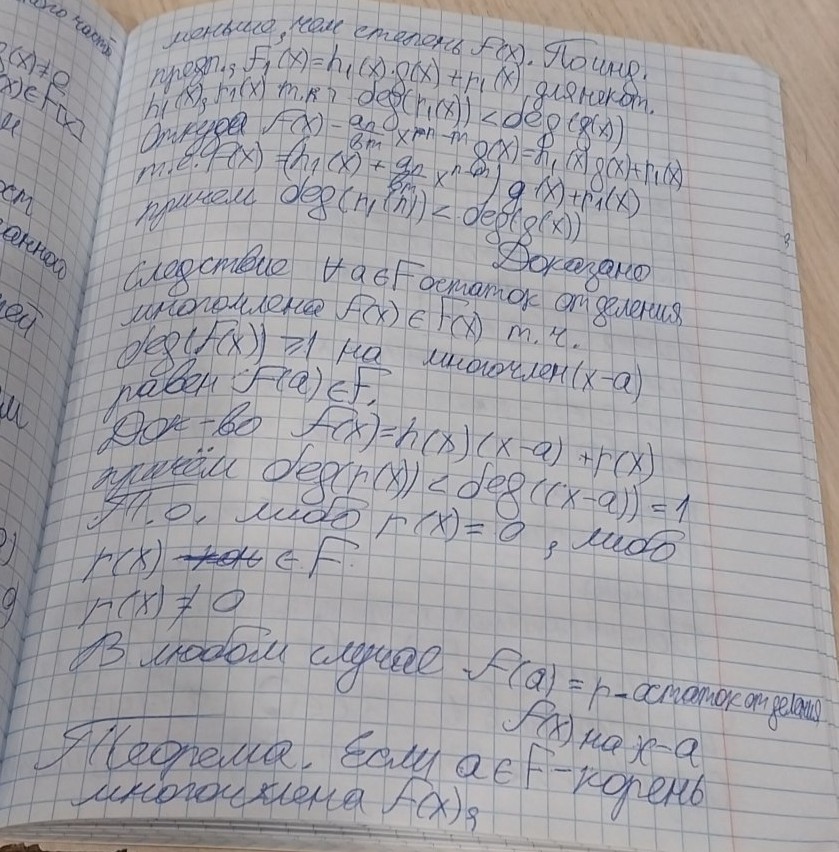 ого част
меньше, чем степень f(x). По инд.
g(x)≠0
предп., F₁(x)=h₁(x)·g(x)+r₁(x) для некот.
(x)∈F[x]
h₁(x), r₁(x) т.к. deg(r₁(x))<deg(g(x))
и
Откуда F(x)-aₙ/bₘ xⁿ⁻ᵐ g(x)=h₁(x)g(x)+r₁(x)
т.е. F(x)=(h₁(x)+aₙ/bₘ xⁿ⁻ᵐ) g(x)+r₁(x)
ост
причем deg(r₁(x))<deg(g(x))
Доказано
Следствие ∀a∈F остаток от деления
многочлена F(x)∈F(x) т.ч.
ей
deg(f(x))≥1 на многочлен (x-a)
равен F(a)∈F.
Док-во F(x)=h(x)(x-a)+r(x)
причём deg(r(x))<deg((x-a))=1
Т.о. либо r(x)=0, либо
r(x) ∈F.
r(x)≠0
В любом случае f(a)=r-остаток от деления
f(x) на x-a
Теорема. Если a∈F-корень
многочлена f(x),